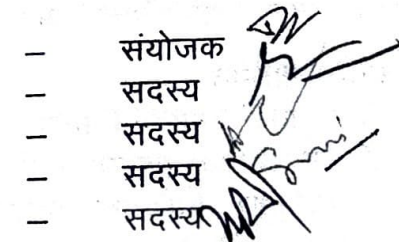 – संयोजक
– सदस्य
– सदस्य
– सदस्य
– सदस्य